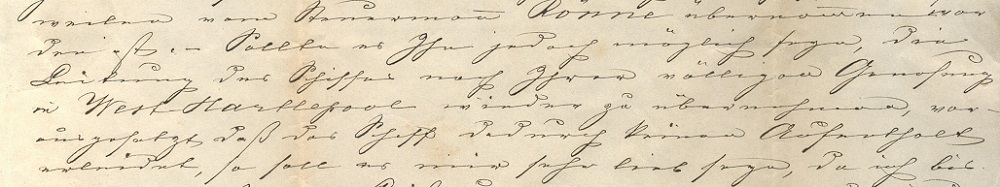 weilen vom Steuermann Rönne übernommen wor
den ist. – Sollte es Ihn jedoch möglich seyn, die
Leitung des Schiffes nach Ihrer völligen Genesung
in West-Hartlepool wieder zu übernehmen, vor-
ausgesetzt daß das Schiff dadurch keinen Aufenthalt
erleidet, so soll es mir sehr lieb seyn, da ich bis